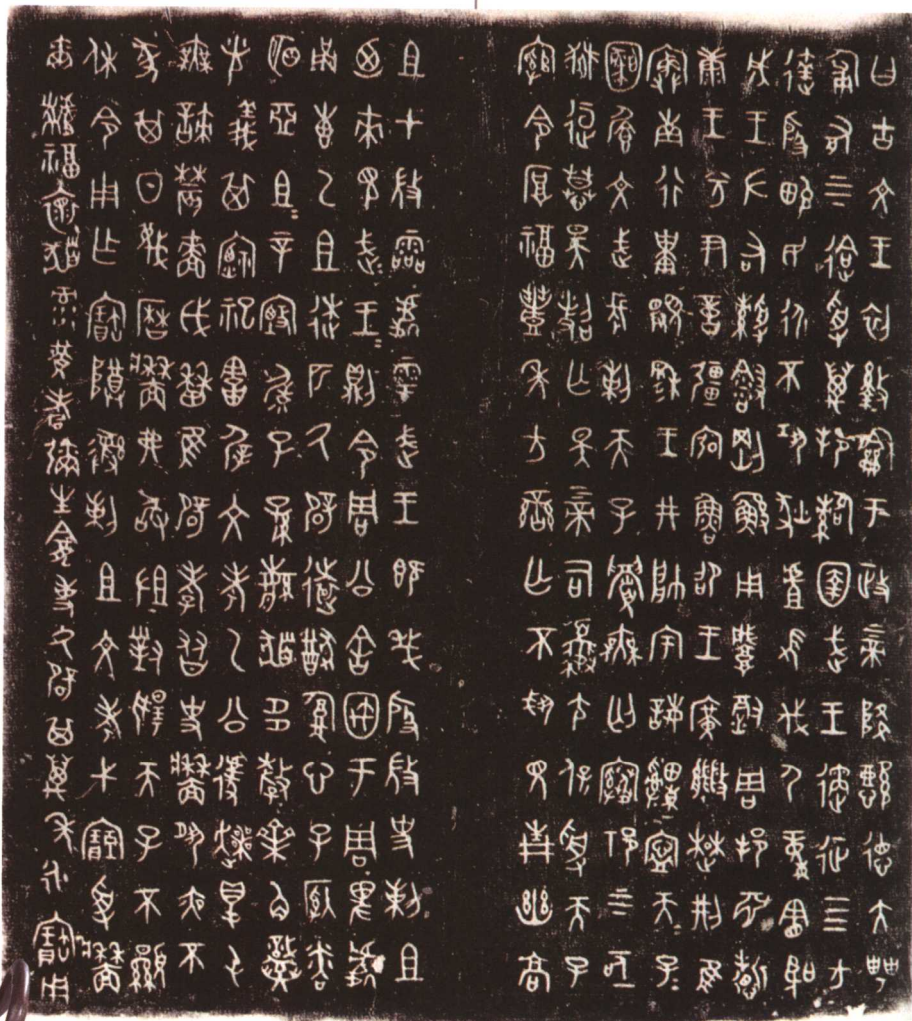 曰古文王初盭龢于政上帝降懿德大甹
匍有上下迨受萬邦𩁹圉武王遹征四方
達殷畯民永不巩狄虘長伐尸童憲聖
成王左右綬䌛剛鯀用肇徹周邦淵哲
康王兮尹億彊宖魯卲王廣能楚荊隹
寏南行祗覭穆王井帥宇誨申寧天子
天子文武長剌天子眉無匄上下
亟獄慕昊照亡斁上帝司夒尢保受天子
綰令厚福豐年方蠻亡不見青幽高
且甲微靈處雩武王既𢦏殷微史剌且
迺來見武王武王則令周公舍㝢于周卑處
甬叀乙且逨匹氒辟遠猷腹心子明
亞且且辛毓子孫繁多釐櫅角熾光
義其禋祀害屖文考乙公遽爽得屯
無諫農嗇戉曆隹辟孝友史牆夙夜不
其日蔑曆牆弗敢沮對揚天子不顯
休令用乍寶尊彝剌且文考弋受牆
爾福懷祿黃耇彌生龕事氒辟其萬年永寶用